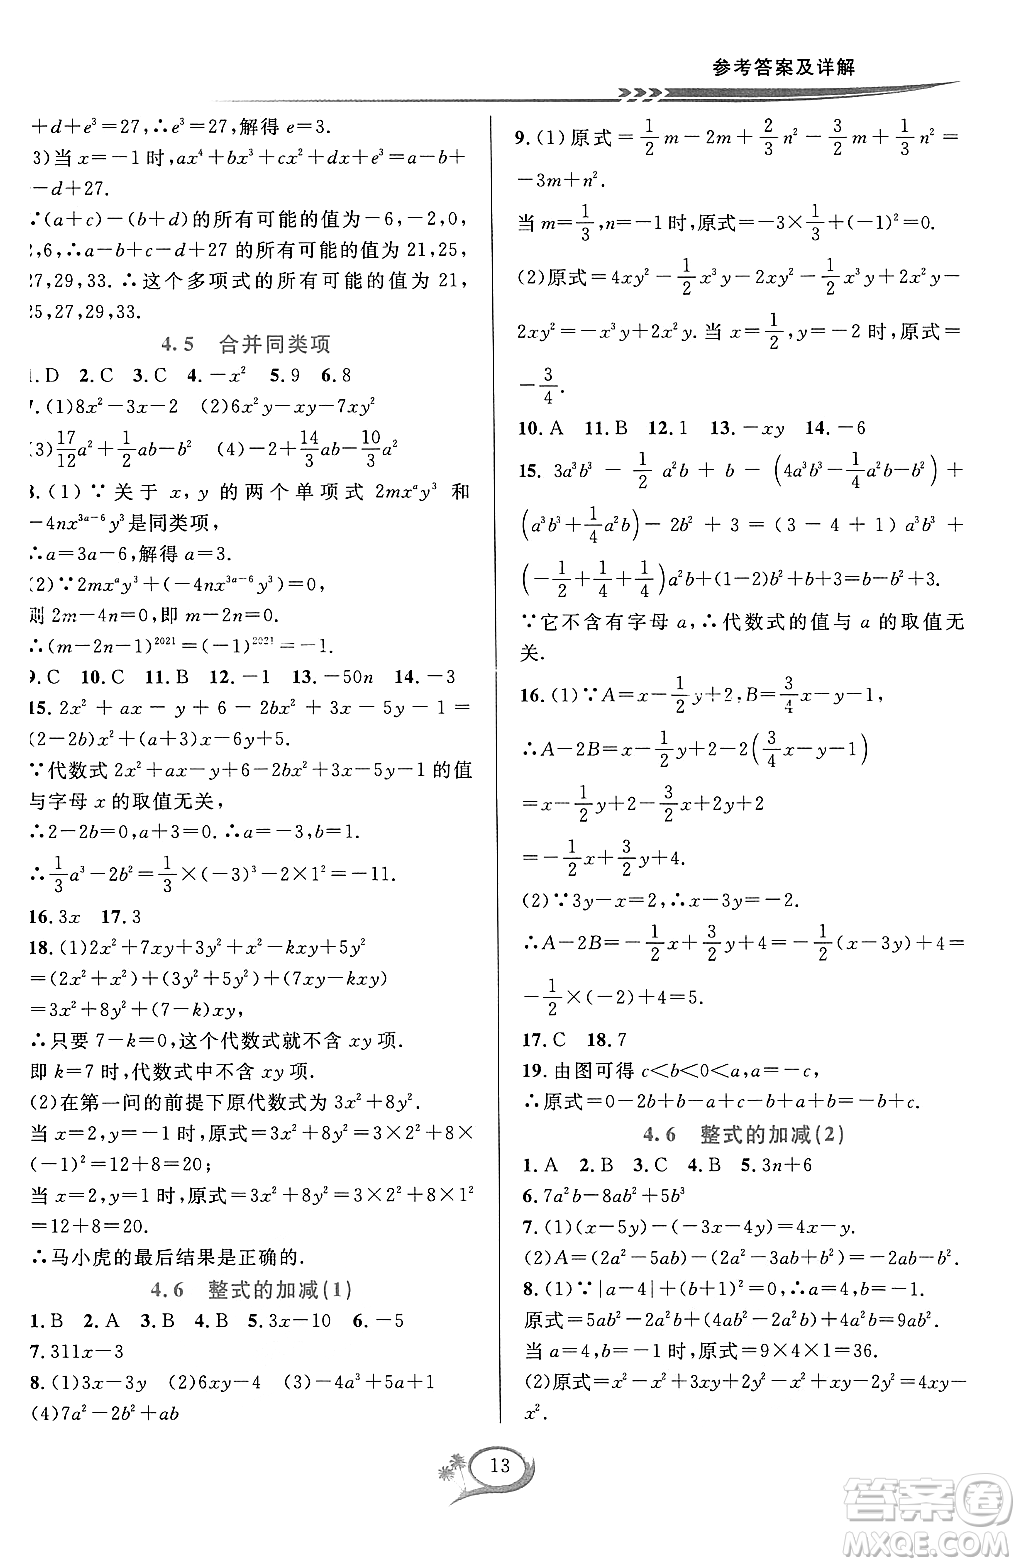 参考答案及详解
+d+e³=27,∴e³=27,解得 e=3.
3)当 x=-1 时,ax⁴+bx³+cx²+dx+e³=a-b+
-d+27.
∴(a+c)-(b+d)的所有可能的值为-6,-2,0,
2,6,∴a-b+c-d+27 的所有可能的值为 21,25,
27,29,33.∴这个多项式的所有可能的值为 21,
25,27,29,33.
4.5 合并同类项
1.D 2.C 3.C 4.-x² 5.9 6.8
7.(1)8x²-3x-2 (2)6x²y-xy-7xy²
(3)17/12a²+1/2ab-b² (4)-2+14/3ab-10/3a²
8.(1)∵关于 x,y 的两个单项式 2mxᵃy³ 和
-4nx³ᵃ⁻⁶y³是同类项,
∴a=3a-6,解得 a=3.
(2)∵2mxᵃy³+(-4nx³ᵃ⁻⁶y³)=0,
则 2m-4n=0,即 m-2n=0,
∴(m-2n-1)²⁰²¹=(-1)²⁰²¹=-1.
9.C 10.C 11.B 12.-1 13.-50n 14.-3
15.2x²+ax-y+6-2bx²+3x-5y-1=
(2-2b)x²+(a+3)x-6y+5.
∵代数式 2x²+ax-y+6-2bx²+3x-5y-1 的值
与字母 x 的取值无关,
∴2-2b=0,a+3=0.∴a=-3,b=1.
∴1/3a³-2b²=1/3×(-3)³-2×1²=-11.
16.3x 17.3
18.(1)2x²+7xy+3y²+x²-kxy+5y²
=(2x²+x²)+(3y²+5y²)+(7xy-kxy)
=3x²+8y²+(7-k)xy,
∴只要 7-k=0,这个代数式就不含 xy 项.
即 k=7 时,代数式中不含 xy 项.
(2)在第一问的前提下原代数式为 3x²+8y².
当 x=2,y=-1 时,原式=3x²+8y²=3×2²+8×
(-1)²=12+8=20;
当 x=2,y=1 时,原式=3x²+8y²=3×2²+8×1²
=12+8=20.
∴马小虎的最后结果是正确的.
4.6 整式的加减(1)
1.B 2.A 3.B 4.B 5.3x-10 6.-5
7.311x-3
8.(1)3x-3y (2)6xy-4 (3)-4a³+5a+1
(4)7a²-2b²+ab
9.(1)原式=1/2m-2m+2/3n²-3/2m+1/3n²=
-3m+n².
当 m=1/3,n=-1 时,原式=-3×1/3+(-1)²=0.
(2)原式=4xy²-1/2x³y-2xy²-1/2x³y+2x³y-
2xy²=x³y.当 x=1/2,y=-2 时,原式=
-3/4.
10.A 11.B 12.1 13.-xy 14.-6
15.3a³b³-1/2a²b+b-(4a³b³-1/4a²b-b²)+
(a³b³+1/4a²b)-2b²+3=(3-4+1)a³b³+
(-1/2+1/4+1/4)a²b+(1-2)b²+b+3=b-b²+3.
∵它不含有字母 a,∴代数式的值与 a 的取值无
关.
16.(1)∵A=x-1/2y+2,B=3/4x-y-1,
∴A-2B=x-1/2y+2-2(3/4x-y-1)
=x-1/2y+2-3/2x+2y+2
=-1/2x+3/2y+4.
(2)∵3y-x=2,∴x-3y=-2.
∴A-2B=-1/2x+3/2y+4=-1/2(x-3y)+4=
-1/2×(-2)+4=5.
17.C 18.7
19.由图可得 c<b<0<a,a<-c,
∴原式=0-2b+(-a-c)+a+b=-b-c.
4.6 整式的加减(2)
1.A 2.B 3.C 4.B 5.3n+6
6.7a²b-8ab²+5b³
7.(1)(x-5y)-(-3x-4y)=4x-y.
(2)A=(2a²-5ab)-(-2ab+b²)=2a²-3ab-b².
8.(1)∵|a-4|+(b+1)²=0,∴a=4,b=-1.
原式=5ab²-2a²b+(4ab²+2a²b)=9ab²,
当 a=4,b=-1 时,原式=9×4×1=36.
(2)原式=x²-x²-3xy+2y²+x²+3xy-2y²=
x².
13
答案圈
MXQE.COM